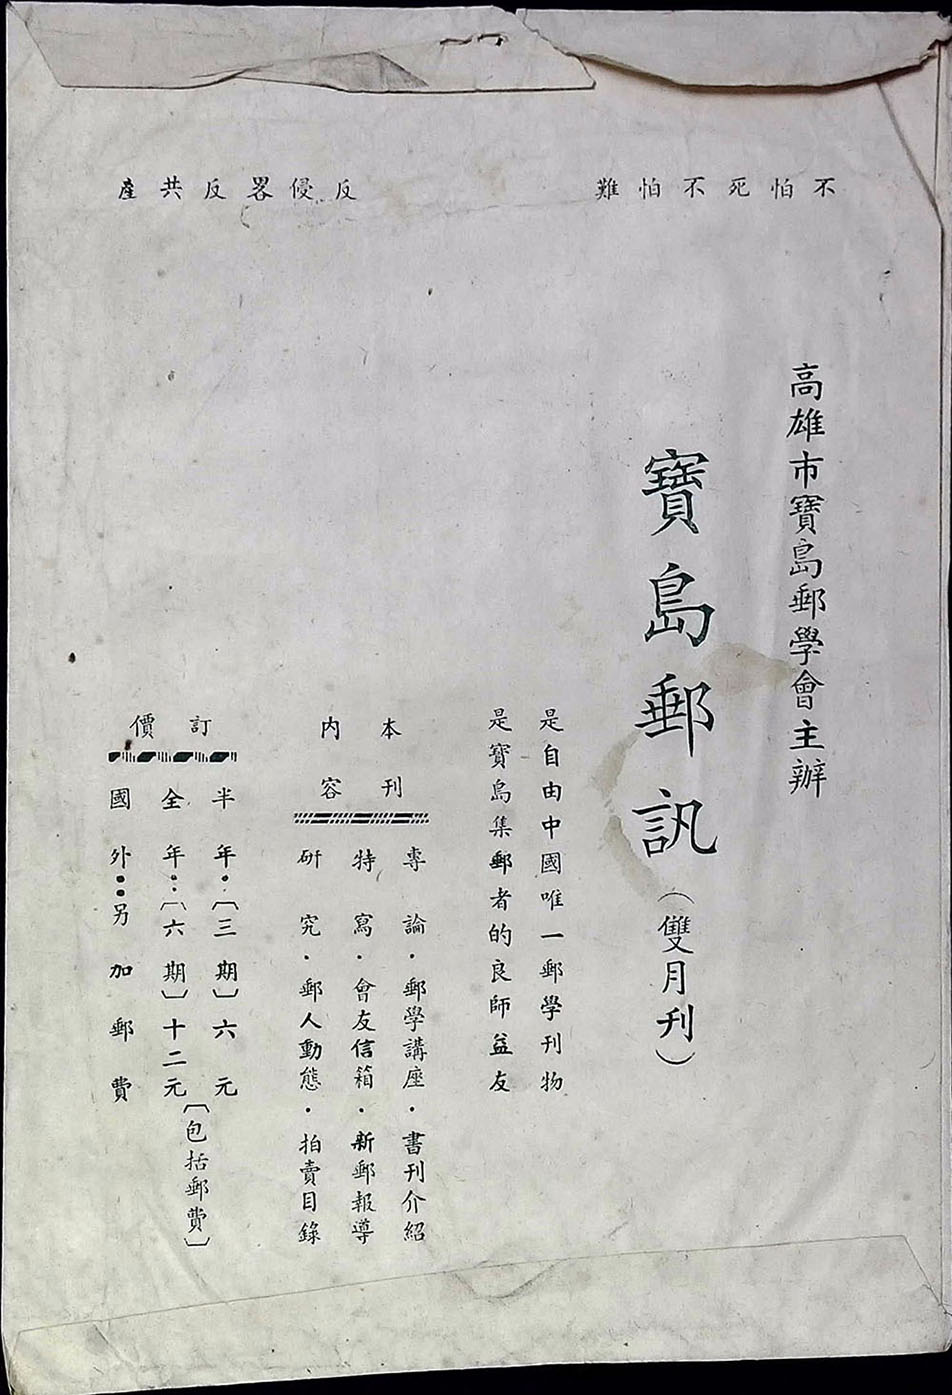 不怕死不怕難
反侵畧反共產
高雄市寶島郵學會主辦
寶島郵訊（雙月刊）
是自由中國唯一郵學刊物
是寶島集郵者的良師益友
本刊內容
專論·郵學講座·書刊介紹
特寫·會友信箱·新郵報導
研究·郵人動態·拍賣目錄
訂價
半年：〔三期〕六元
全年：〔六期〕十二元
〔包括郵費〕
國外：另加郵費